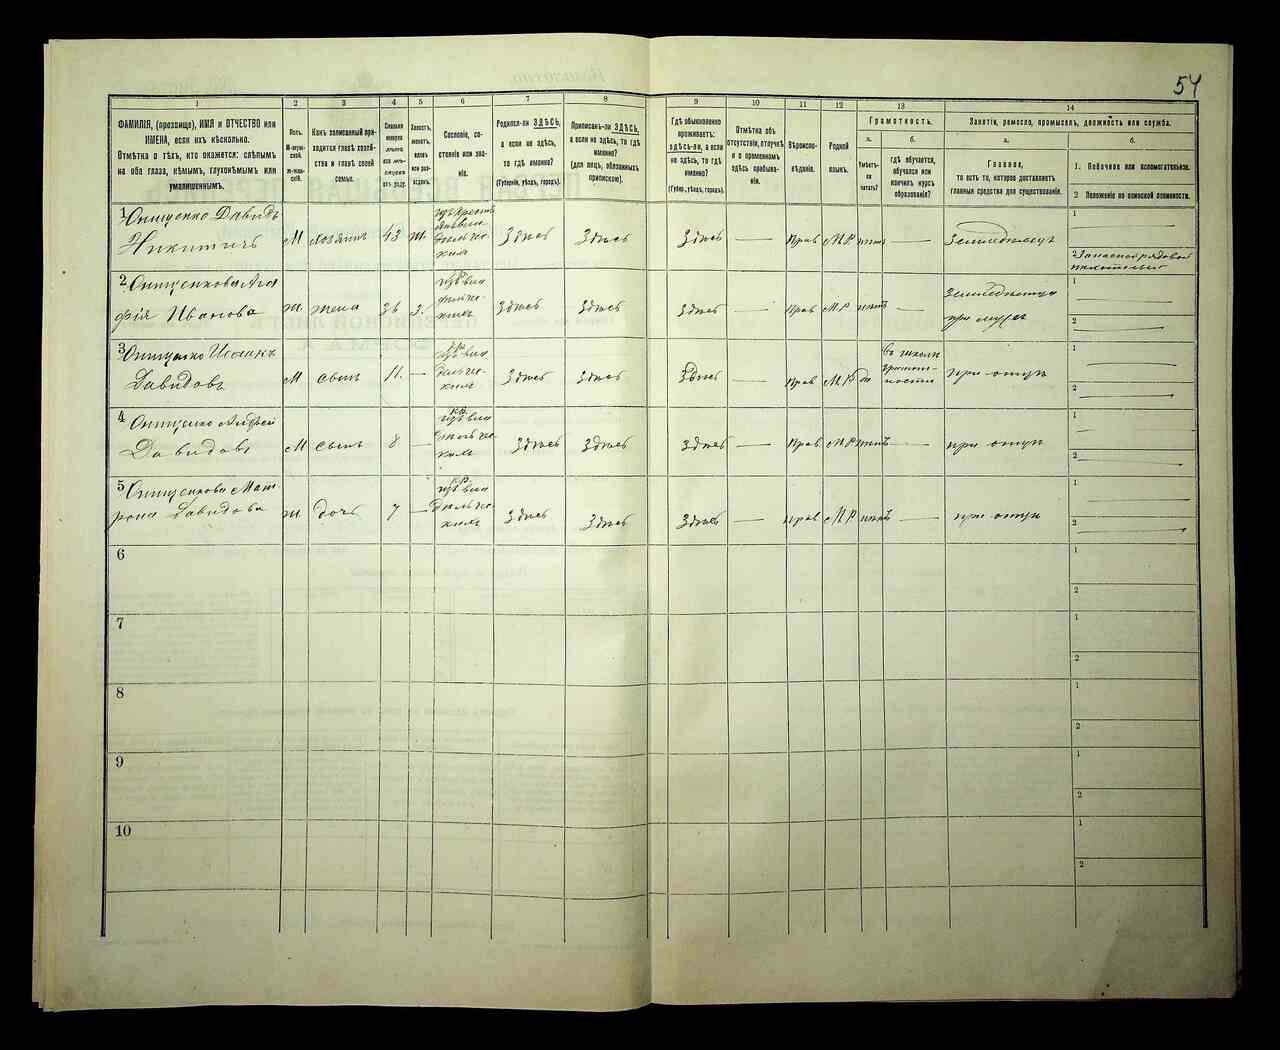 54
1 2 3 4 5 6 7 8 9 10 11 12 13 14
ФАМИЛІЯ, (прозвище), ИМЯ и ОТЧЕСТВО или
ИМЕНА, если ихъ нѣсколько.
Отмѣтка о тѣхъ, кто окажется: слѣпымъ
на оба глаза, нѣмымъ, глухонѣмымъ или
умалишеннымъ.
Полъ.
М-муж-
ской.
ж-жен-
скій.
Какъ записанный при-
ходится главѣ хозяй-
ства и главѣ своей
семьи.
Сословіе, со-
стояніе или зва-
ніе.
Родился-ли ЗДѢСЬ,
а если не здѣсь,
то гдѣ именно?
(Губернія, уѣздъ, городъ).
Приписанъ-ли ЗДѢСЬ,
а если не здѣсь, то гдѣ
именно?
(для лицъ, обязанныхъ
припискою).
Гдѣ обыкновенно
проживаетъ:
здѣсь-ли, а если
не здѣсь, то гдѣ
именно?
(Губерн., уѣздъ, городъ).
Отмѣтка объ
отсутствіи, отлучкѣ
и о временномъ
здѣсь пребыва-
ніи.
Вѣроиспо-
вѣданіе.
Родной
языкъ.
Грамотность.
а.
Умѣетъ-
ли
читать?
б.
гдѣ обучается,
обучался или
кончилъ курсъ
образованія?
Занятіе, ремесло, промыселъ, должность или служба.
а.
Главное,
то есть то, которое доставляетъ
главныя средства для существованія.
б.
1. Побочное или вспомогательное.
2 Положеніе по воинской повинности.
1 Онищенко Давидъ
Никитичъ М хозяинъ 43 ж. здѣсь здѣсь здѣсь — прав М.Р. нѣтъ — Земледѣлецъ
1 —
2 Запасной рядовой
2 Онищенкова Ага
фія Иванова ж. жена 36 з. здѣсь здѣсь здѣсь — прав М.Р. нѣтъ — Земледѣлица
при мужѣ
1 —
2 —
3 Онищенко Исаакъ
Давидовъ М сынъ 11. — здѣсь здѣсь здѣсь — прав М.Р. да въ школѣ
грамот-
ности
при отцѣ
1 —
2 —
4 Онищенко Андрей
Давидовъ М сынъ 8 — здѣсь здѣсь здѣсь — прав М.Р. нѣтъ — при отцѣ
1 —
2 —
5 Онищенкова Мат-
рона Давидова ж дочь 7 — здѣсь здѣсь здѣсь — прав М.Р. нѣтъ — при отцѣ
1 —
2 —
6
1
2
7
1
2
8
1
2
9
1
2
10
1
2